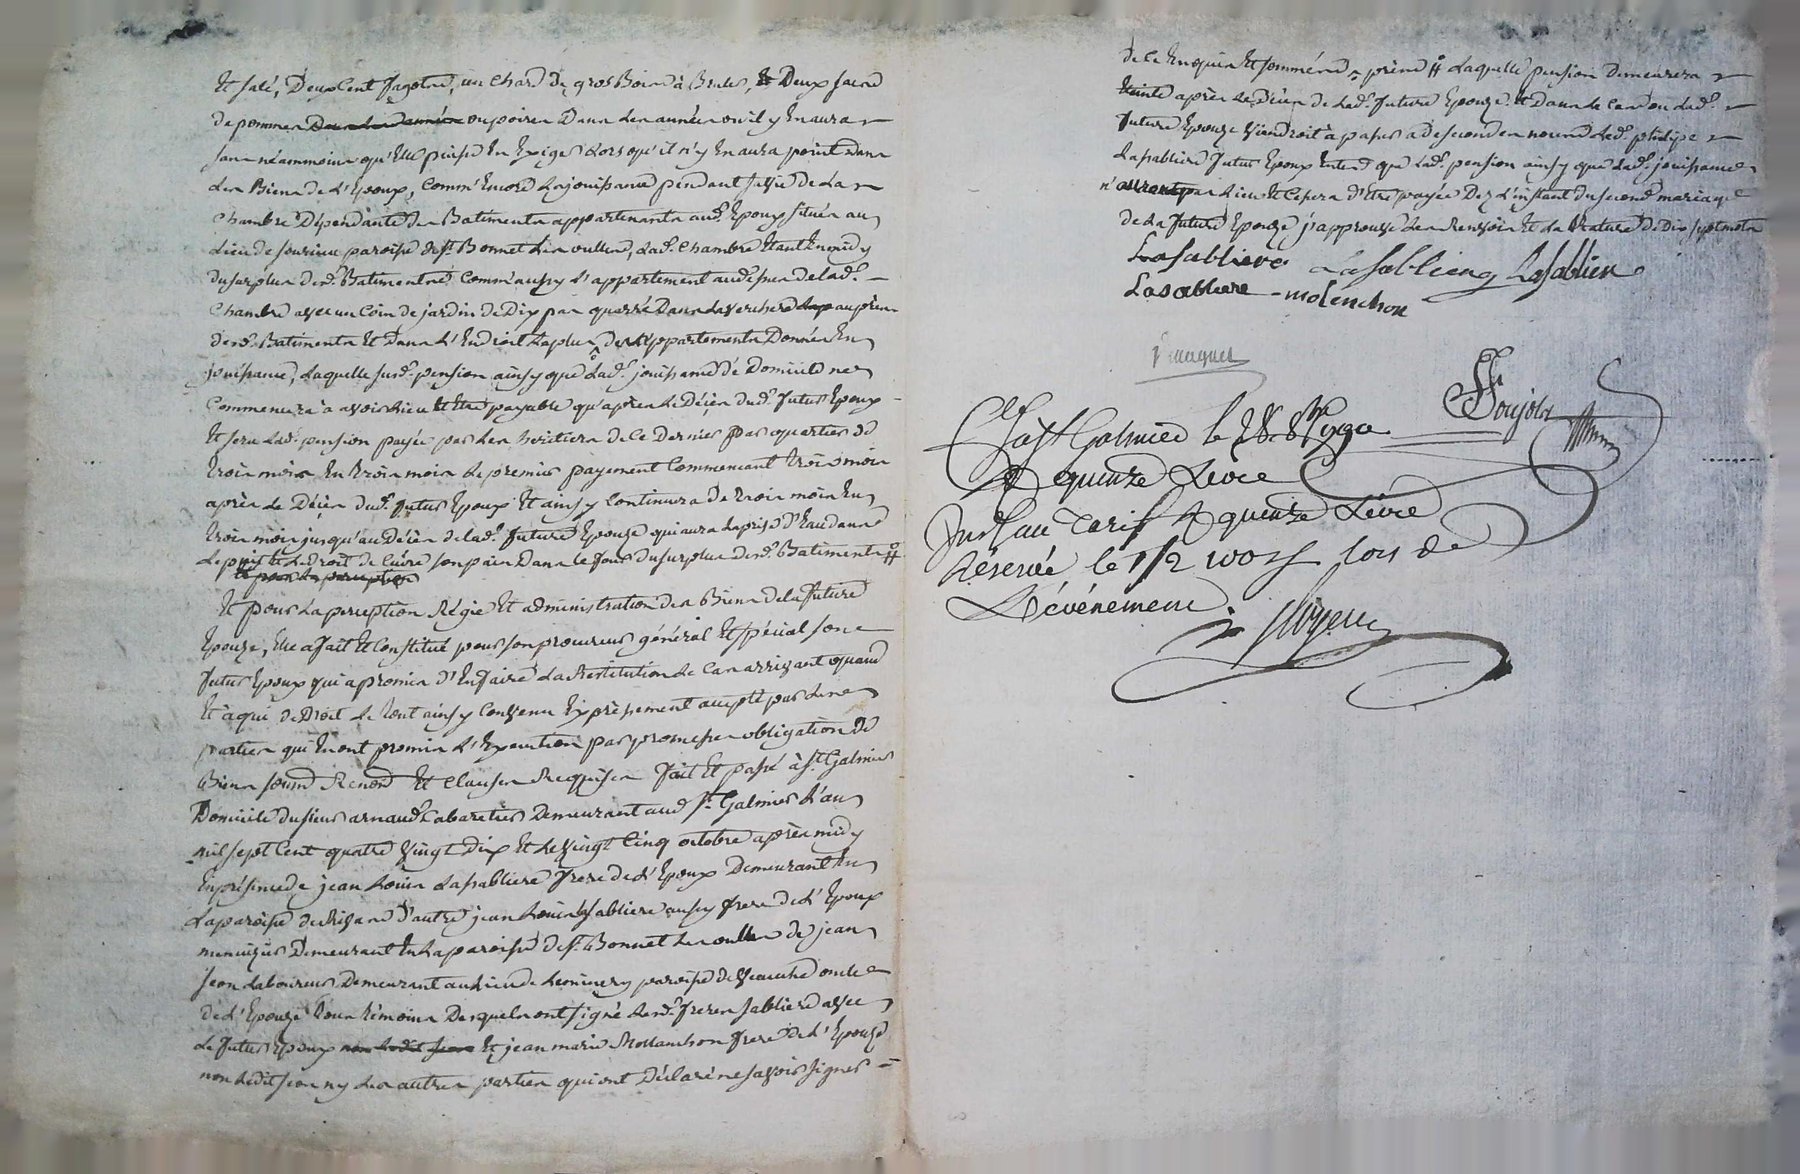 Et salé, Deux Cent fagotes, un Chard de gros Bois à Bruler, Et Deux sacs
de pommes ou poires Dans Les années ou il y En aura
sans néammoins qu'Elle puisse En Exiger Lors qu'il n'y En aura point Dans
Les Biens de L'Epoux, Comm' Encore La jouissance pendant sa vie de La
Chambre Dépendante des Batiments appartenants aud. Epoux situés au
Lieu de paroisse de St. Bonnet Les oulles, Lad. Chambre Etant En midy
du surplus desd. Batiments Comm'aussy L'appartement au dessus de lad.
Chambre avec un Coin de jardin de Dix pas quarré Dans La verchere auprès
desd. Batiments Et Dans L'Endroit Le plus des appartements Donnés En
jouissance, Laquelle susd. pension ainsy que Lad. jouissance de Domicile ne
Commencera à avoir Lieu Et Etre payable qu'après Le Décès dud. futur Epoux
Et sera Lad. pension payée par Les heritiers de Ce Dernier par quartier de
trois mois En trois mois Le premier payement Commencant trois mois
après Le Décès dud. futur Epoux Et ainsy Continuera de trois mois En
trois mois jusqu'au Décès de lad. future Epouse qui aura La prise d'Eau dans
Le puis Et Le droit de Cuire son pain Dans le four du surplus desd. Batiments #
Et pour La perception
Et pour La perception Régie Et administration des Biens de la future
Epouse, Elle a fait Et Constitué pour son procureur général Et spécial son
futur Epoux qui a promis d'En faire La Restitution Le Cas arrivant quand
Et à qui de Droit Le tout ainsy Convenu Expressement accepté par Les
parties qui En ont promis L'Execution par promesses obligation de
Biens soumis Renond Et Clauses Requises fait Et passé à St. Galmier
Domicile du sieur arnaud Cabaretier Demeurant aud St. Galmier L'an
mil sept Cent quatre vingt Dix Et Le vingt Cinq octobre après midy
En présence de jean Louis Lasabliere frere de L'Epoux Demeurant En
La paroisse de d'autre jean Louis Lasabliere aussy frere de L'Epoux
menuizier Demeurant En La paroisse de St. Bonnet Les oulles de jean
jeon Laboureur Demeurant au Lieu de paroisse de Veauche oncle
de L'Epouse tous témoins Desquels ont signé Lesd. freres sabliere avec
Le futur Epoux Et jean marie Mollanchon frere de L'Epouse
non Ledit jeon ny Les autres parties qui ont Déclaré ne savoir signer
de Ce Enquis Et sommés # Laquelle pension Demeurera
Eteinte après Le Décès de Lad. future Epouse Et Dans Le Cas ou Lad.
future Epouse viendroit à passer a de secondes noces Led. philipe
Lasabliere futur Epoux Entend que Lad. pension ainsy que Lad. jouissance
n' Lieu Et Cesera d'Etre payée Dez L'instant du second mariage
de La future Epouse j'approuve Les Renvois Et La Rature de Dix sept mots
Lasabliere Lasabliere Lasabliere
Lasabliere molenchon
Clé a St Galmier le 28. 8bre 1790
R quinze Livre
au Tarif R quinze Livre
Réservée le 1/2 100 lors de
L'événement.